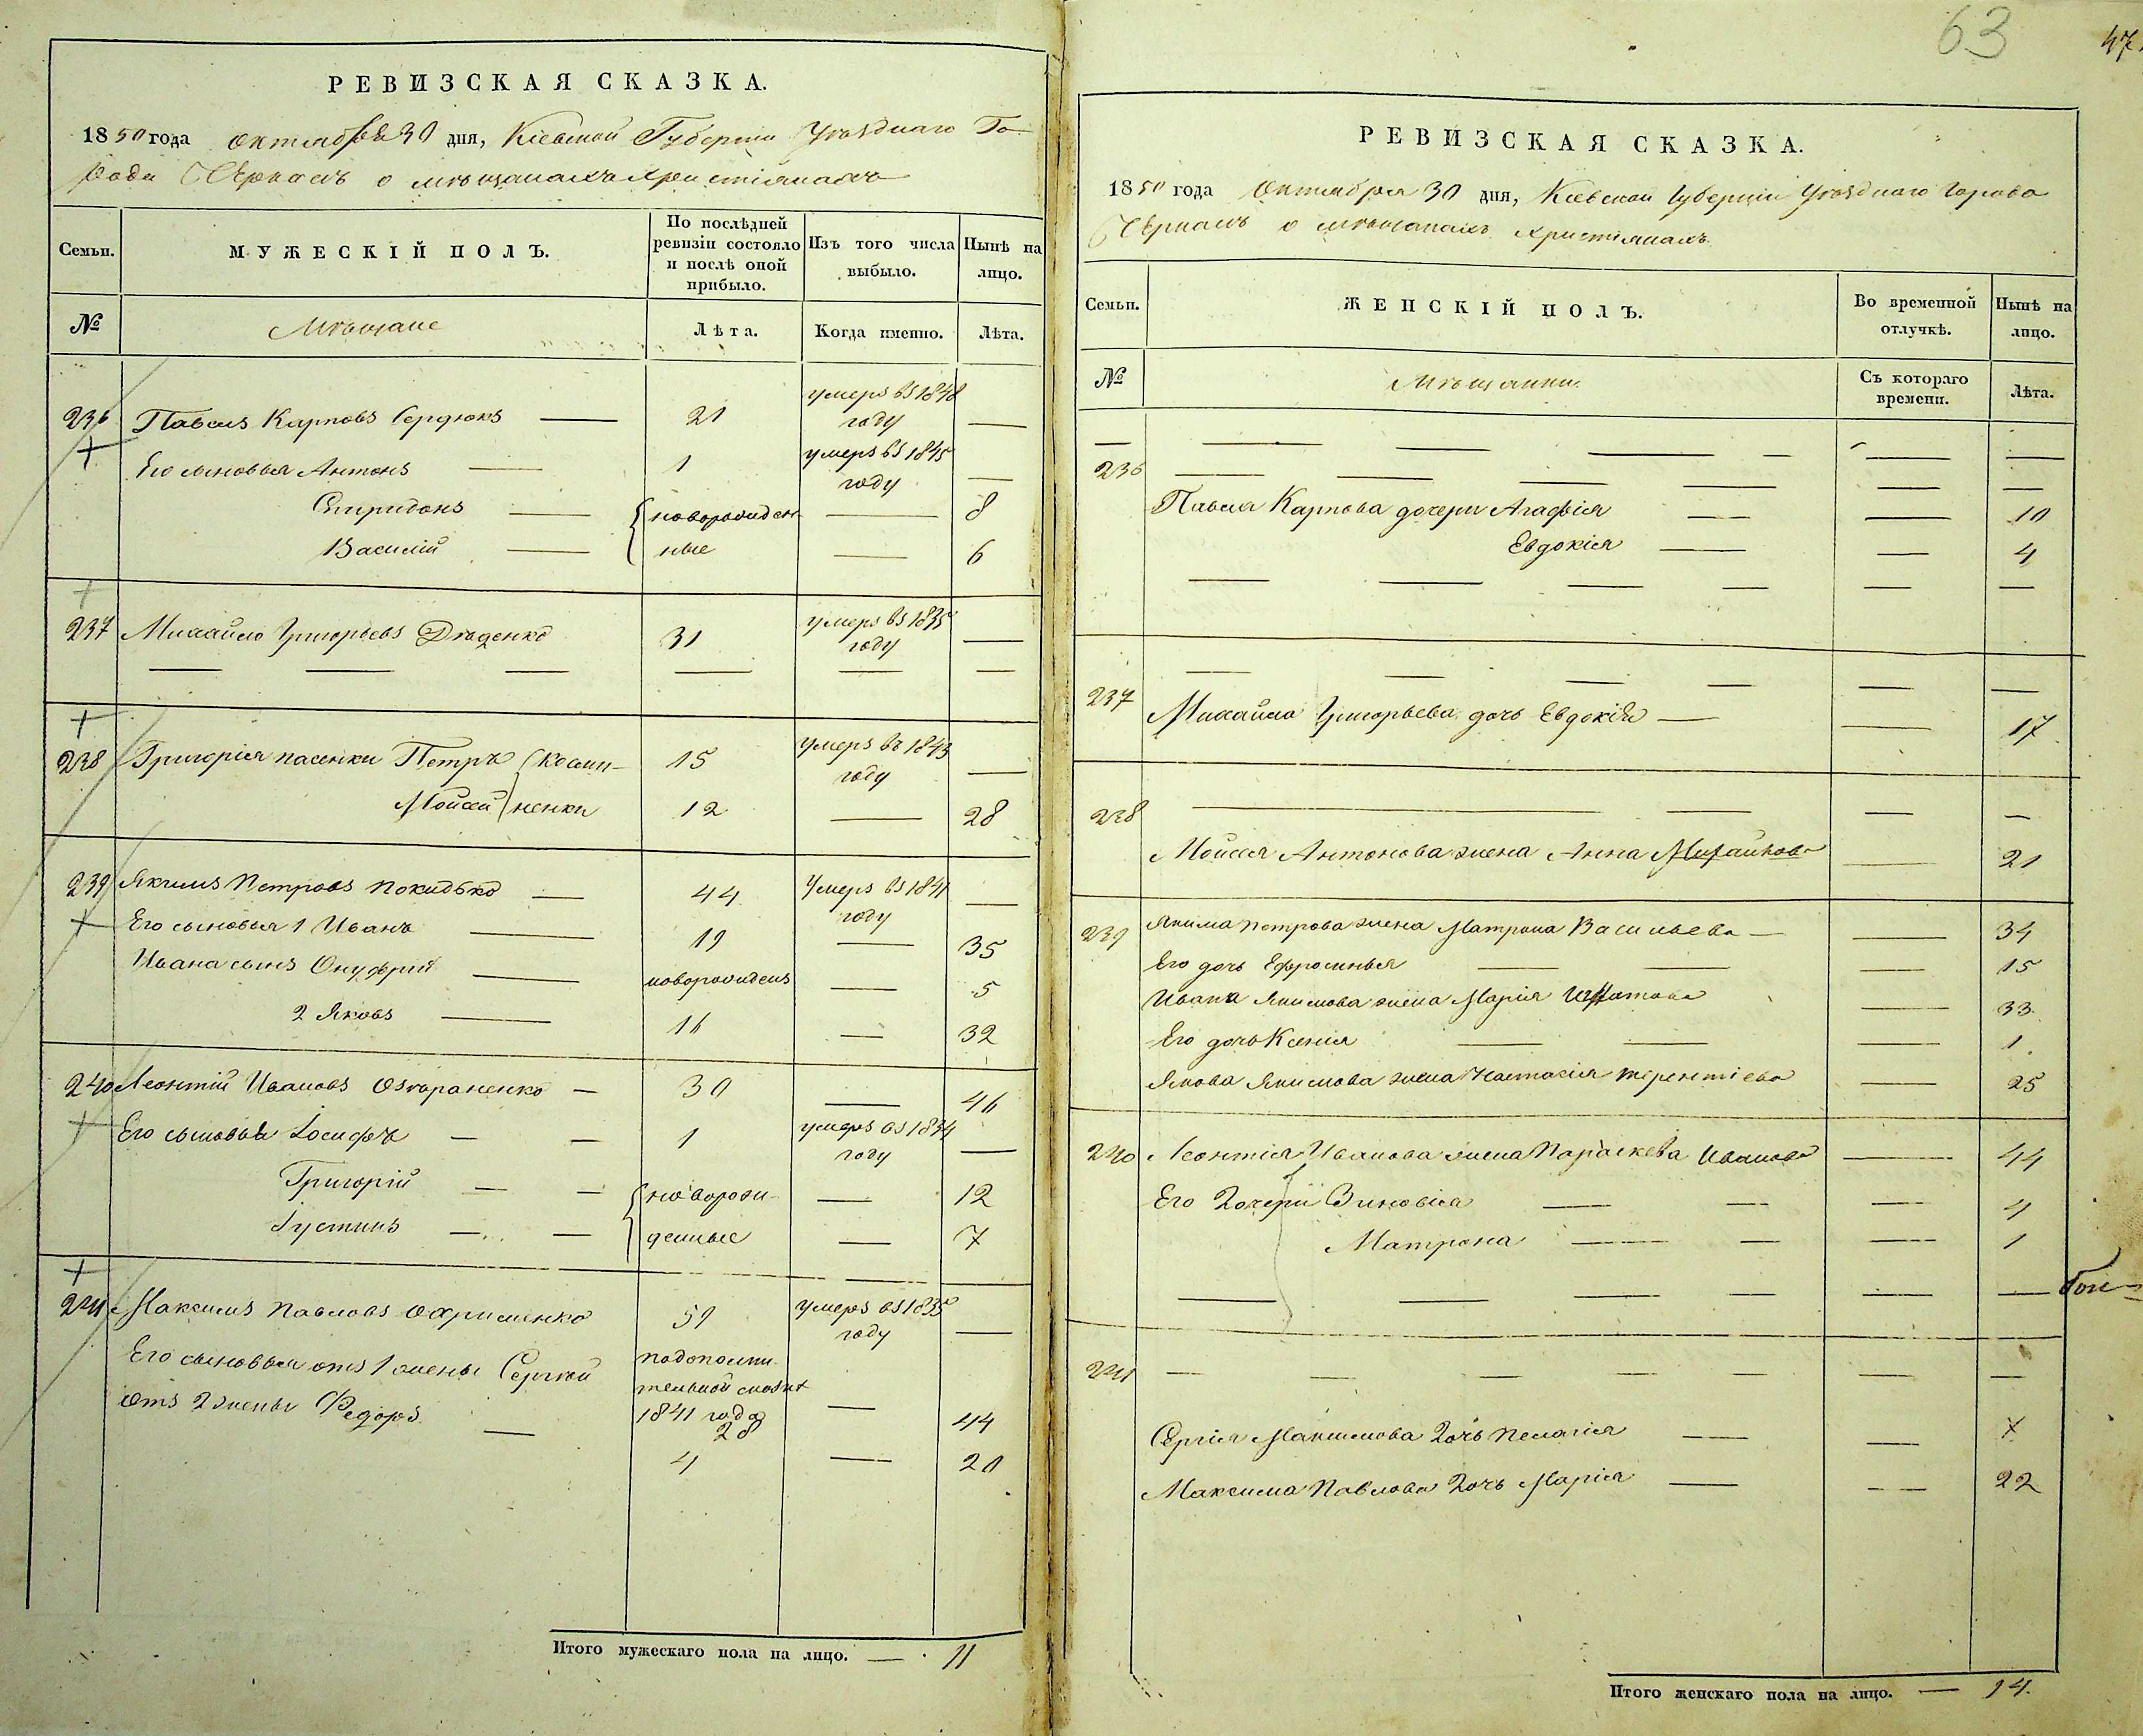 63
47
РЕВИЗСКАЯ СКАЗКА.
1850 года Октября 30 дня, Кіевской Губерніи Уѣзднаго Го-
рода Черкасъ о мѣщанахъ христіянахъ
Семьи.
МУЖЕСКІЙ ПОЛЪ.
По послѣдней
ревизіи состояло
и послѣ оной
прибыло.
Изъ того числа
выбыло.
Нынѣ на
лицо.
№
Мѣщане
Лѣта.
Когда именно.
Лѣта.
236 Павелъ Карповъ Сердюкъ — 21 умеръ въ 1848 году —
Его сыновья Антонъ — 1 умеръ въ 1845 году —
Спиридонъ — { новорожден- — 8
Василій — ные — 6
237 Михайло Григорьевъ Дяденко 31 умеръ въ 1835 году —
238 Григорія пасенки Петръ 15 умеръ въ 1843 году —
Мойсей 12 — 28
239 Якимъ Петровъ Покидько — 44 Умеръ въ 1841 году —
Его сыновья 1 Иванъ — 19 — 35
Ивана сынъ Онуфрій — новорожденъ — 5
2 Яковъ — 16 — 32
240 Леонтій Ивановъ — 30 — 46
Его сыновья Іосифъ — — 1 умеръ въ 1834 году —
Григорій — — { новорож- — 12
Густинъ — — денные — 7
241 Максимъ Павловъ Охрименко 59 умеръ въ 1835 году —
Его сыновья отъ 1 жены Сергій
подополни-
тельной сказке
1841 года
28 — 44
отъ 2 жены Федоръ — 4 — 20
Итого мужескаго пола на лицо. — 11
РЕВИЗСКАЯ СКАЗКА.
1850 года Октября 30 дня, Кіевской Губерніи Уѣзднаго Города
Черкасъ о мѣщанахъ христіянахъ.
Семьи.
ЖЕНСКІЙ ПОЛЪ.
Во временной
отлучкѣ.
Нынѣ на
лицо.
№
Мѣщанки.
Съ котораго
времени.
Лѣта.
236
Павла Карпова дочери Агафія — — 10
Евдокія — — 4
237
Михайла Григорьева дочь Евдокія — — 17
238
Мойсея Антонова жена Анна — 21
239 Якима Петрова жена Матрона Васильева — — 34
Его дочь Ефросинья — — — 15
Ивана Якимова жена Марія — 33
Его дочь Ксенія — — — 1
Якова Якимова жена Настасія Терентіева — 25
240 Леонтія Иванова жена Параскева Иванова — 44
Его дочери Зиновія — — — 4
Матрона — — — 1
241
Сергія Максимова дочь Пелагія — —
Максима Павлова дочь Марія — — 22
Итого женскаго пола на лицо. — 14.